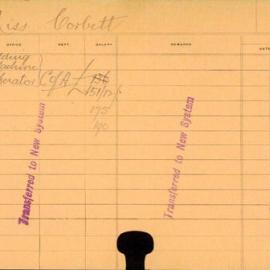 iss Corbett
OFFICE DEPT. SALARY REMARKS DATE
dding
achine
perator C of A £156
151/12/6
175
190
Transferred to New System
Transferred to New System